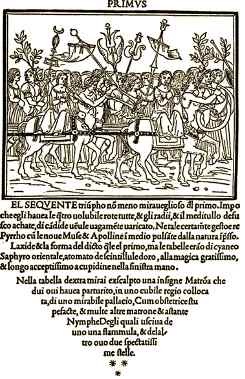 PRIMVS
EL SEQVENTE triūpho nō meno miraueglioso dl primo. Impo
che egli hauea le q̄tro uolubile rote tutte, & gli radii, & il meditullo defu
sco achate, di cādide uēule uagamēte uaricato, Ne tale certāte gestoe re
Pyrrho cū le noue Muse & Apolline ī medio pulsāte dalla natura īpsso.
Laxide & la forma del dicto q̄le el primo, ma le tabelle erāo di cyaneo
Saphyro orientale, atomato de scintilluledoro, alla magica gratissimo,
& longo acceptissimo a cupidine nella sinistra mano.
Nella tabella dextra mirai exscalpto una insigne Matrōa che
dui oui hauea parturito, in uno cubile regio colloca
ta, di uno mirabile pallacio, Cum obstetrice stu
pefacte, & multe altre matrone & astante
Nymphe Degli quali usciua de
uno una flammula, & delal-
tro ouo due spectatissi
me stelle.
* *
*